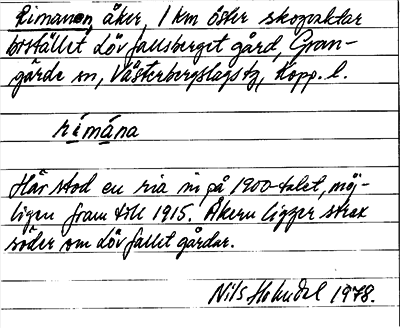 Rimanen, åker, 1 km öster skogvaktar
bostället Lövfallsberget gård, Gran-
gärde sn, Västerbergslags tg, Kopp. l.
rimána
Här stod en ria in på 1900-talet, möj-
ligen fram till 1915. Åkern ligger strax
söder om Lövfallet gårdar.
Nils 1978.